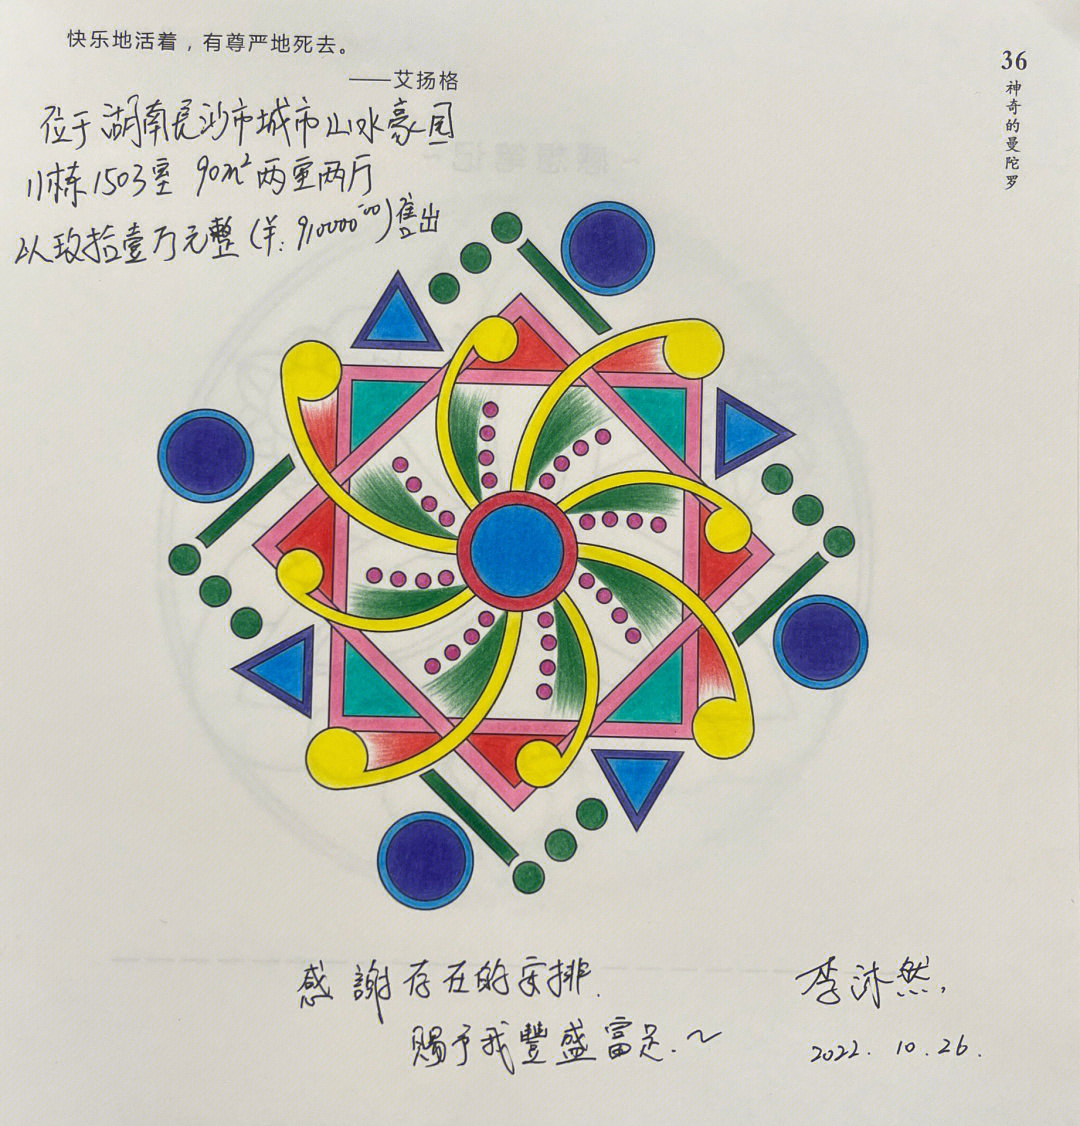 快乐地活着，有尊严地死去。
——艾扬格
36
神奇的曼陀罗
位于湖南长沙市城市山水豪园
11栋1503室 90m² 两室两厅
以玖拾壹万元整(羊: 910000.00)售出
感謝存在的安排.
赐予我豐盛富足.~
李沐然,
2022.10.26.